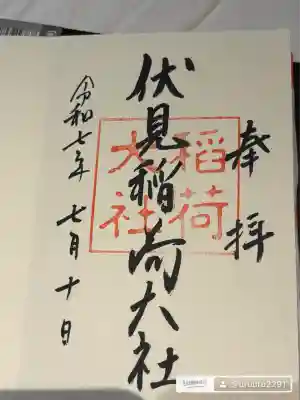 奉拝
伏見稲荷大社
稲荷
大社
令和七年 七月十日